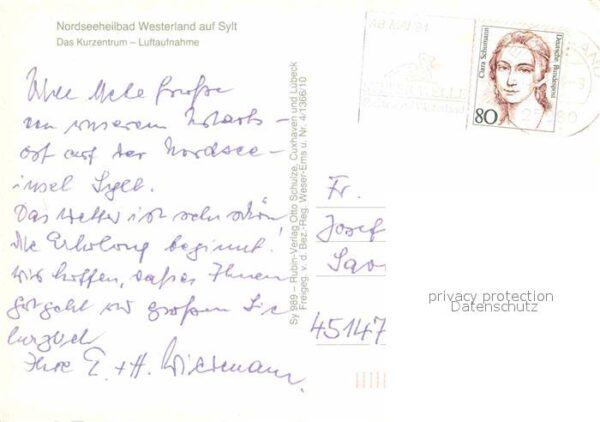 Nordseeheilbad Westerland auf Sylt
Das Kurzentrum – Luftaufnahme
Viele liebe Grüße
von unserem Urlaubs-
ort auf der Nordsee-
insel Sylt.
Das Wetter ist sehr schön
Die Erholung beginnt!
Wir hoffen, daß es Ihnen
gut geht und grüßen Sie
herzlich
Ihre E. + H.
Sy 989 – Rubin-Verlag Otto Schulze, Cuxhaven und Lübeck
Freigeg. v. d. Bez.-Reg. Weser-Ems u. Nr. 4/1366/10
AB MAI '91
Clara Schumann
Deutsche Bundespost
80
Fr.
Josef
45147
privacy protection
Datenschutz